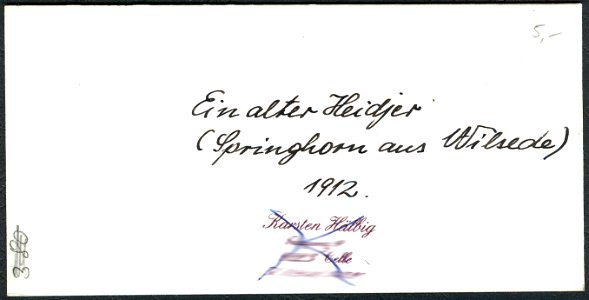 5,-
Ein alter Heidjer
(Springhorn aus Wilsede)
1912.
Karsten Hälbig
Celle